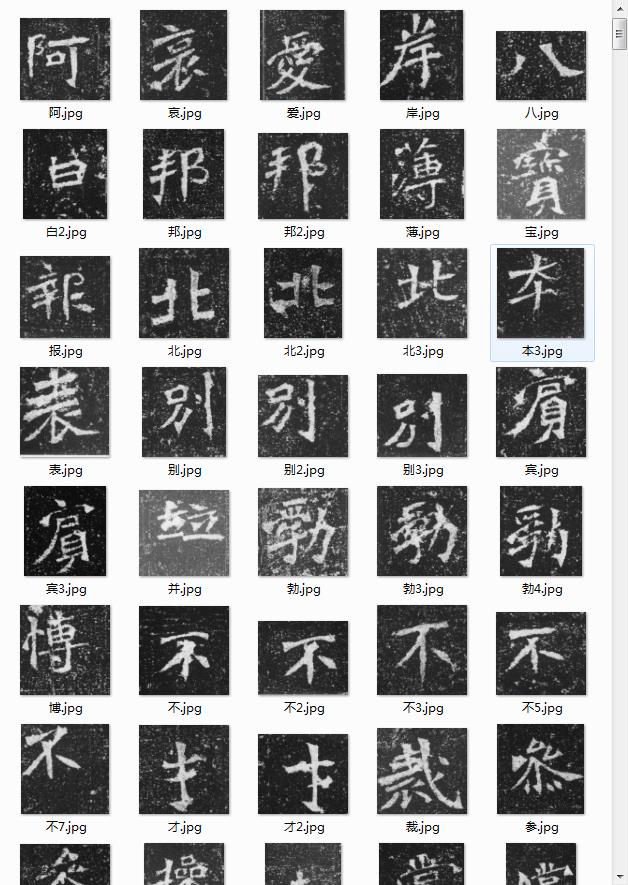 阿 哀 愛 岸 八
阿.jpg 哀.jpg 爱.jpg 岸.jpg 八.jpg
白 邦 邦 薄 寶
白2.jpg 邦.jpg 邦2.jpg 薄.jpg 宝.jpg
報 北 北 北 夲
报.jpg 北.jpg 北2.jpg 北3.jpg 本3.jpg
表 別 別 別 賓
表.jpg 别.jpg 别2.jpg 别3.jpg 宾.jpg
賓 竝 勃 勃 勃
宾3.jpg 并.jpg 勃.jpg 勃3.jpg 勃4.jpg
博 不 不 不 不
博.jpg 不.jpg 不2.jpg 不3.jpg 不5.jpg
不 才 才 裁 叅
不7.jpg 才.jpg 才2.jpg 裁.jpg 参.jpg
操